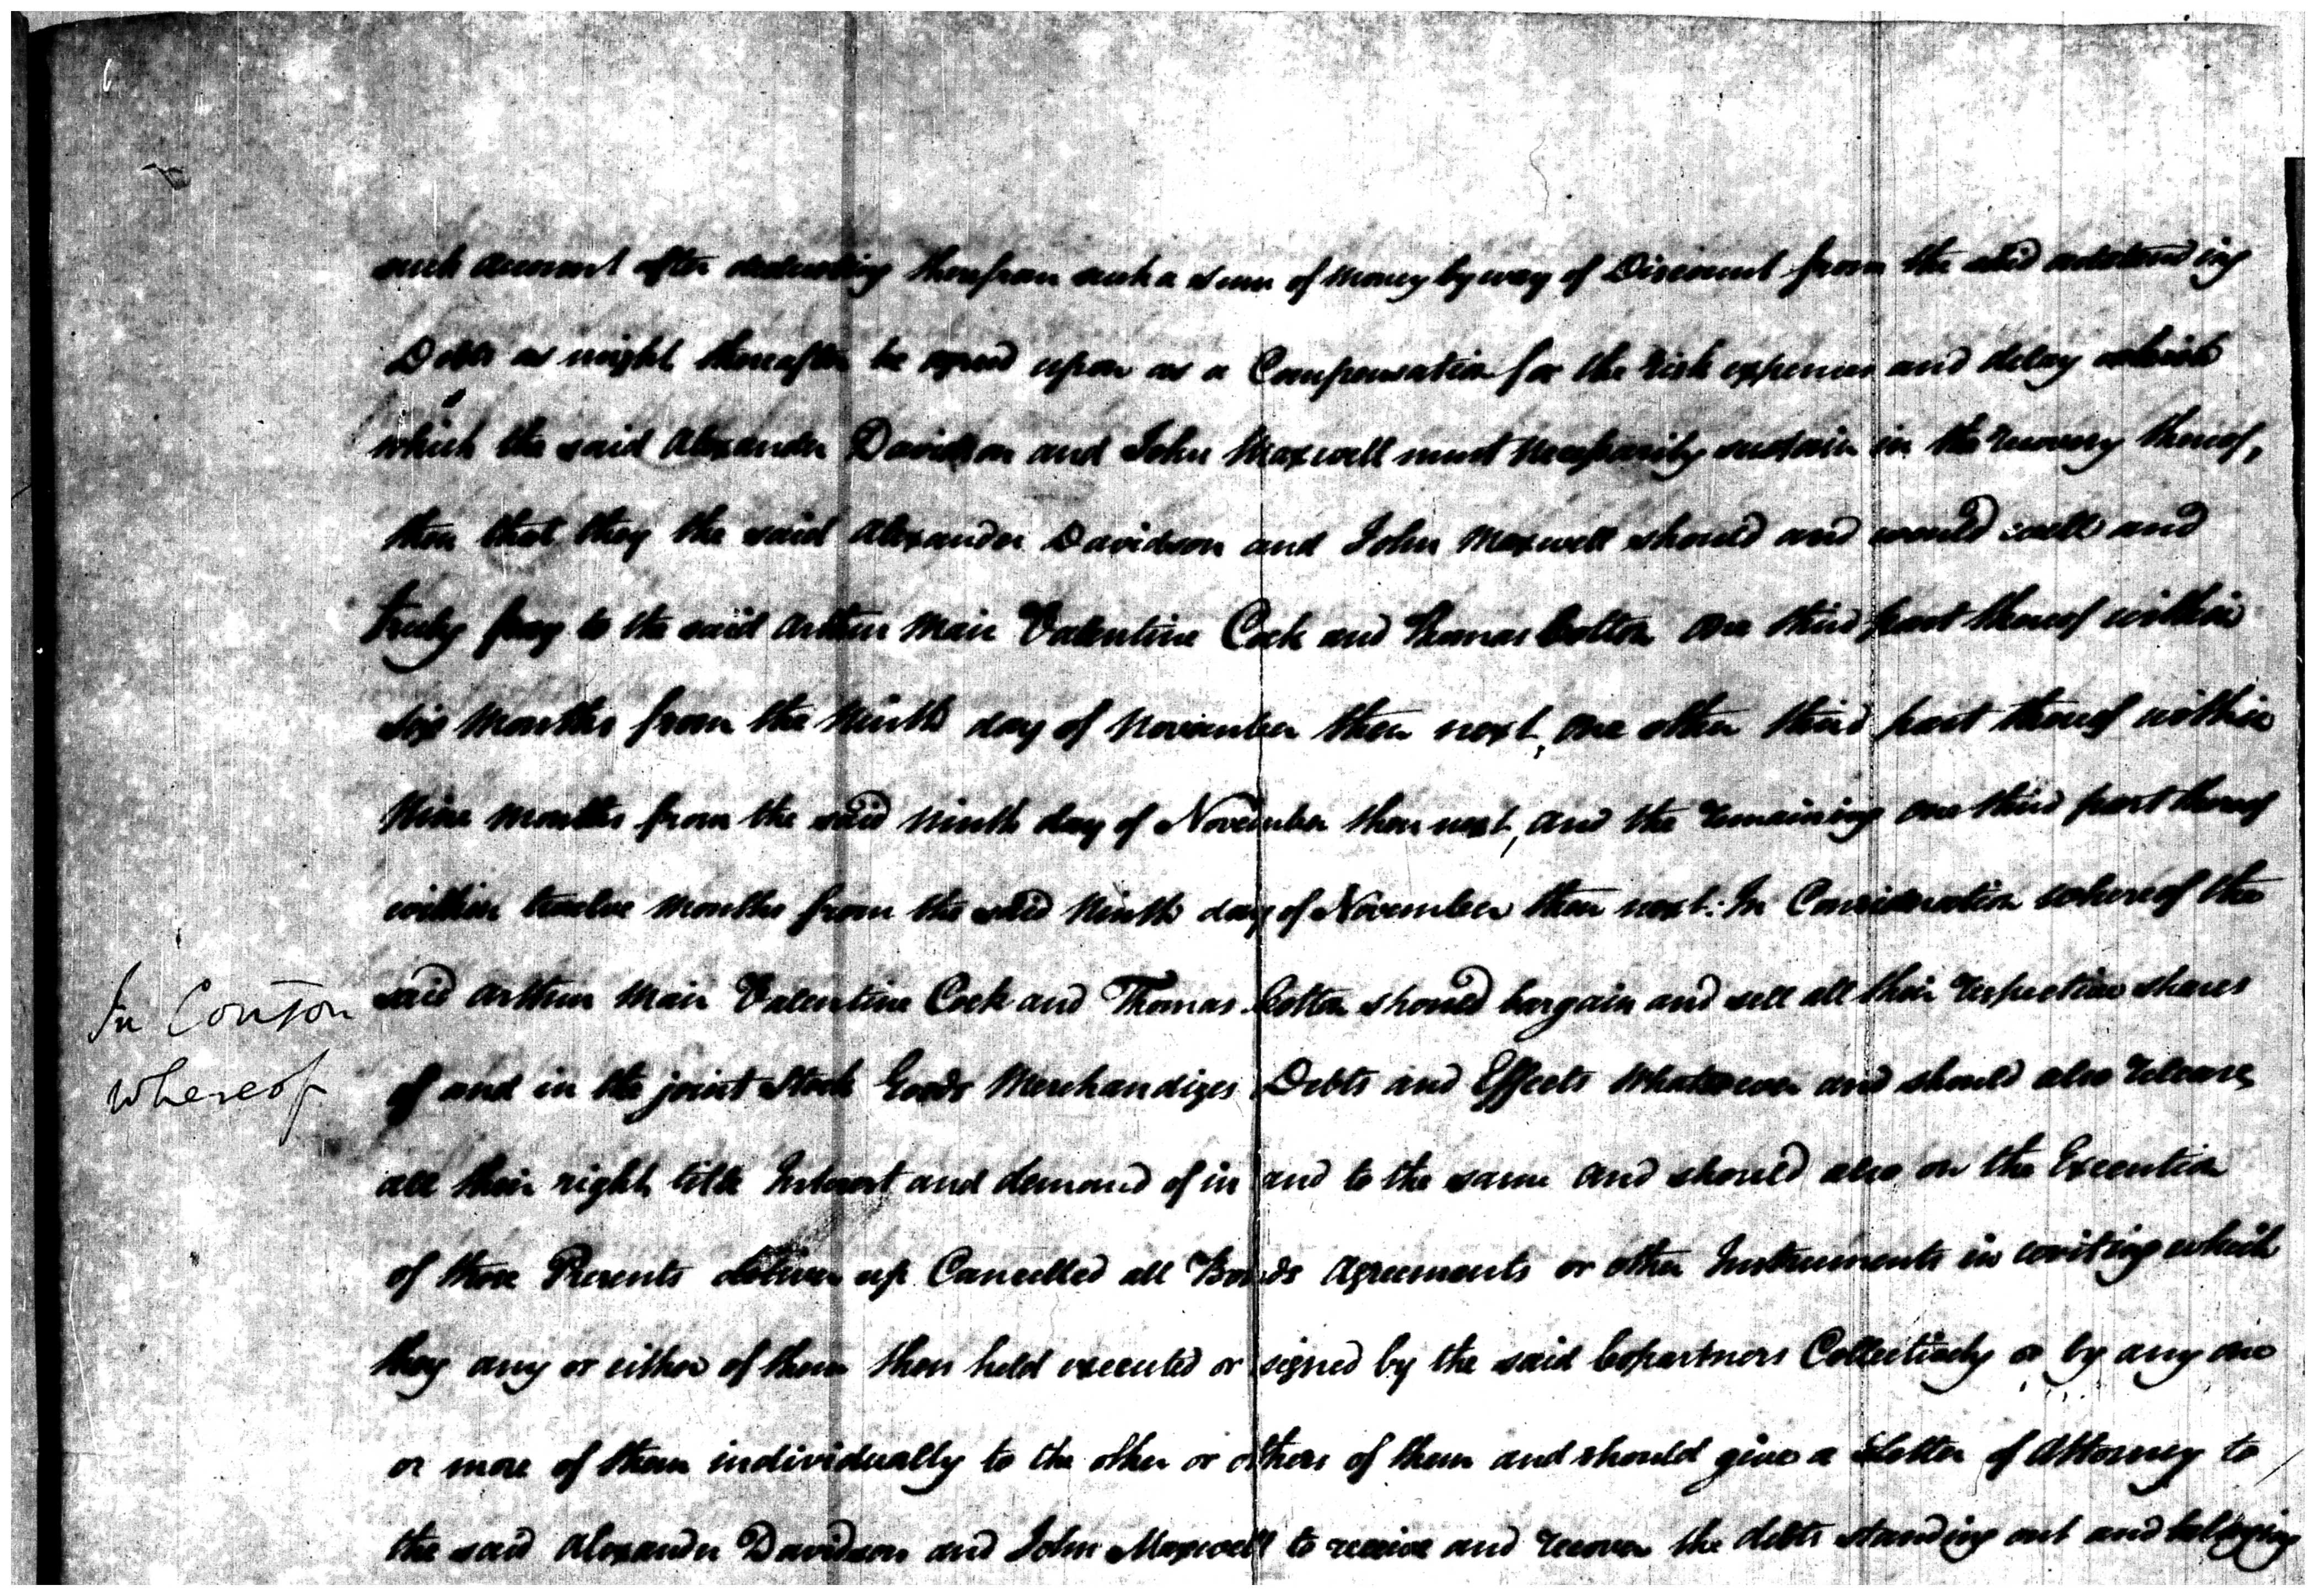 such account after deducting therefrom such a Sum of Money by way of Discount from the said outstanding
Debts as might thereafter be agreed upon as a Compensation for the risk expences and delay which
which the said Alexander Davidson and John Maxwell must necessarily sustain in the recovery thereof,
then that they the said Alexander Davidson and John Maxwell should and would well and
truly pay to the said Arthur Mair Valentine Cock and Thomas Colton one third part thereof within
six Months from the Ninth day of November then next, one other third part thereof within
Nine Months from the said Ninth day of November then next, and the remaining one third part thereof
within twelve Months from the said Ninth day of November then next: In Consideration whereof the
In Conson
whereof
said Arthur Mair Valentine Cock and Thomas Colton should bargain and sell all their respective shares
of and in the joint Stock Goods Merchandizes Debts and Effects whatsoever and should also release
all their right title Interest and demand of in and to the same and should also on the Execution
of those Presents deliver up Cancelled all Bonds Agreements or other Instruments in writing which
they any or either of them then held executed or signed by the said Copartners Collectively or by any one
or more of them individually to the other or others of them and should give a Letter of Attorney to
the said Alexander Davidson and John Maxwell to receive and recover the debts standing out and belonging